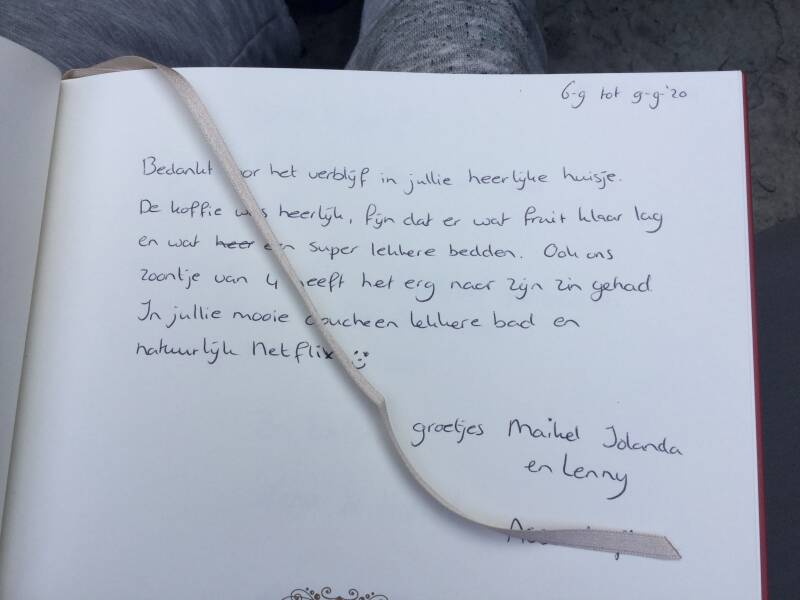 6-9 tot 9-9-'20
Bedankt voor het verblijf in jullie heerlijke huisje.
De koffie was heerlijk, fijn dat er wat fruit klaar lag
en wat heer een super lekkere bedden. Ook ons
zoontje van 4 heeft het erg naar zijn zin gehad
In jullie mooie douche en lekkere bad en
natuurlijk Netflix
groetjes Maikel Jolanda
en Lenny